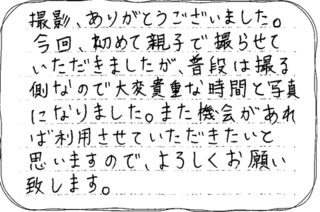 撮影、ありがとうございました。
今回、初めて親子で撮らせて
いただきましたが、普段は撮る
側なので大変貴重な時間と写真
になりました。また機会があれ
ば利用させていただきたいと
思いますので、よろしくお願い
致します。